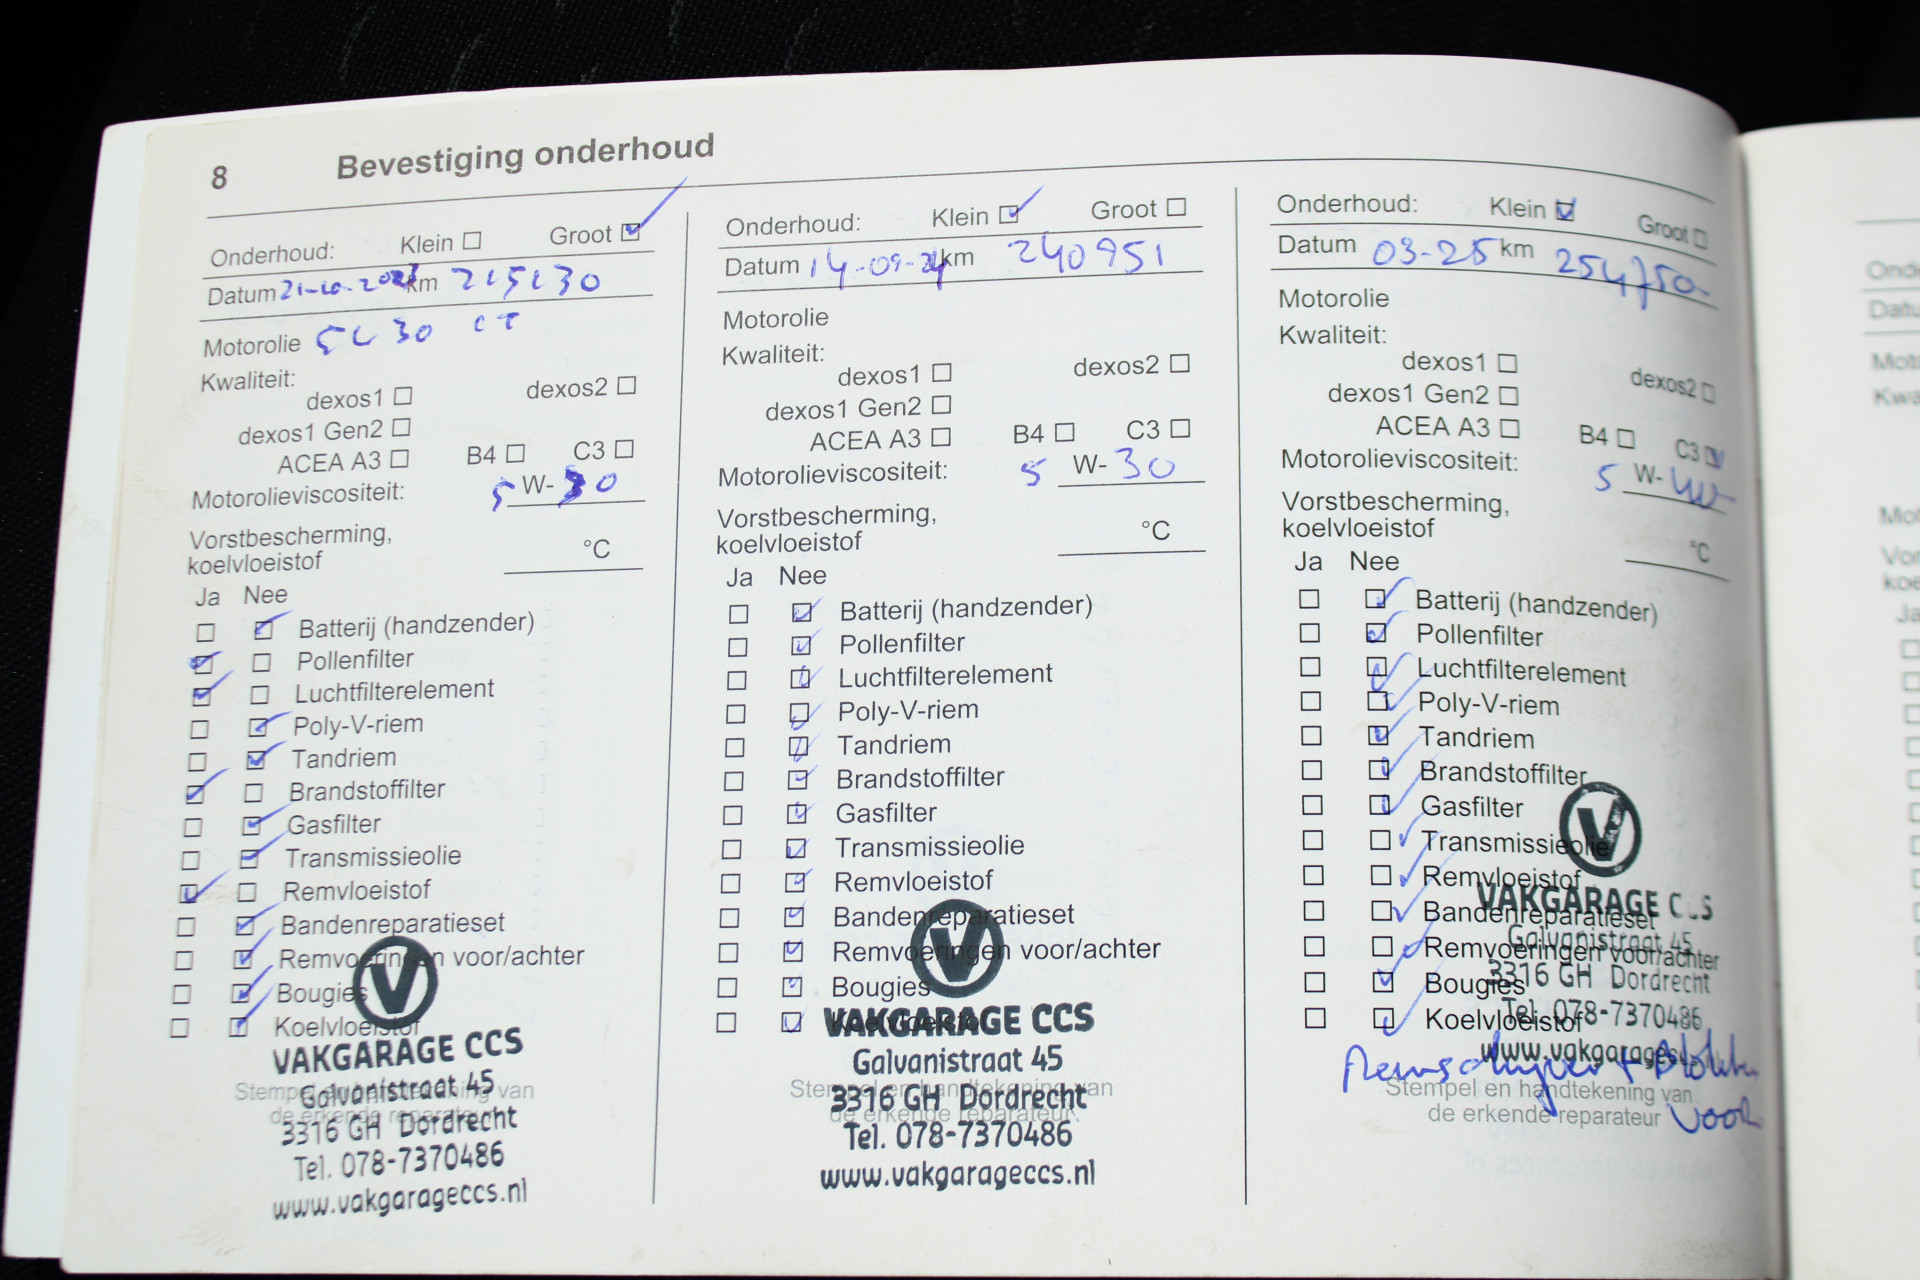 8 Bevestiging onderhoud
Onderhoud: Klein Groot
Datum km 215130
Motorolie 5L30
Kwaliteit:
dexos1 dexos2
dexos1 Gen2
ACEA A3 B4 C3
Motorolieviscositeit:
5 W-30
Vorstbescherming,
koelvloeistof °C
Ja Nee
Batterij (handzender)
Pollenfilter
Luchtfilterelement
Poly-V-riem
Tandriem
Brandstoffilter
Gasfilter
Transmissieolie
Remvloeistof
Bandenreparatieset
Remvoeringen voor/achter
Bougies
Koelvloeistof
V
VAKGARAGE CCS
Galvanistraat 45
3316 GH Dordrecht
Tel. 078-7370486
www.vakgarageccs.nl
Stempel en handtekening van
de erkende reparateur
Onderhoud: Klein Groot
Datum 14-09-24 km 240951
Motorolie
Kwaliteit:
dexos1 dexos2
dexos1 Gen2
ACEA A3 B4 C3
Motorolieviscositeit:
5 W-30
Vorstbescherming,
koelvloeistof °C
Ja Nee
Batterij (handzender)
Pollenfilter
Luchtfilterelement
Poly-V-riem
Tandriem
Brandstoffilter
Gasfilter
Transmissieolie
Remvloeistof
Bandenreparatieset
Remvoeringen voor/achter
Bougies
Koelvloeistof
V
VAKGARAGE CCS
Galvanistraat 45
3316 GH Dordrecht
Tel. 078-7370486
www.vakgarageccs.nl
Stempel en handtekening van
de erkende reparateur
Onderhoud: Klein Groot
Datum 03-25 km 254750-
Motorolie
Kwaliteit:
dexos1 dexos2
dexos1 Gen2
ACEA A3 B4 C3
Motorolieviscositeit:
5 W-
Vorstbescherming,
koelvloeistof °C
Ja Nee
Batterij (handzender)
Pollenfilter
Luchtfilterelement
Poly-V-riem
Tandriem
Brandstoffilter
Gasfilter
Transmissieolie
Remvloeistof
Bandenreparatieset
Remvoeringen voor/achter
Bougies
Koelvloeistof
V
VAKGARAGE CCS
Galvanistraat 45
3316 GH Dordrecht
Tel. 078-7370486
www.vakgarages
Remschijven + Blokken
voor
Stempel en handtekening van
de erkende reparateur